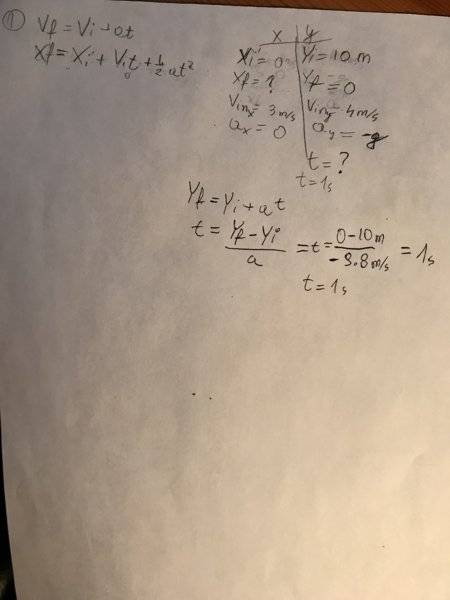 ① Vf = Vi + at
Xf = Xi + Vit + 1/2 at²
x | y
Xi = 0 | Yi = 10 m
Xf = ? | Yf = 0
Vinx = 3 m/s | Viny = 4 m/s
ax = 0 | ay = -g
t = ?
t = 1s
Yf = Yi + at
t = Yf - Yi / a = t = 0 - 10m / -9.8 m/s = 1s
t = 1s